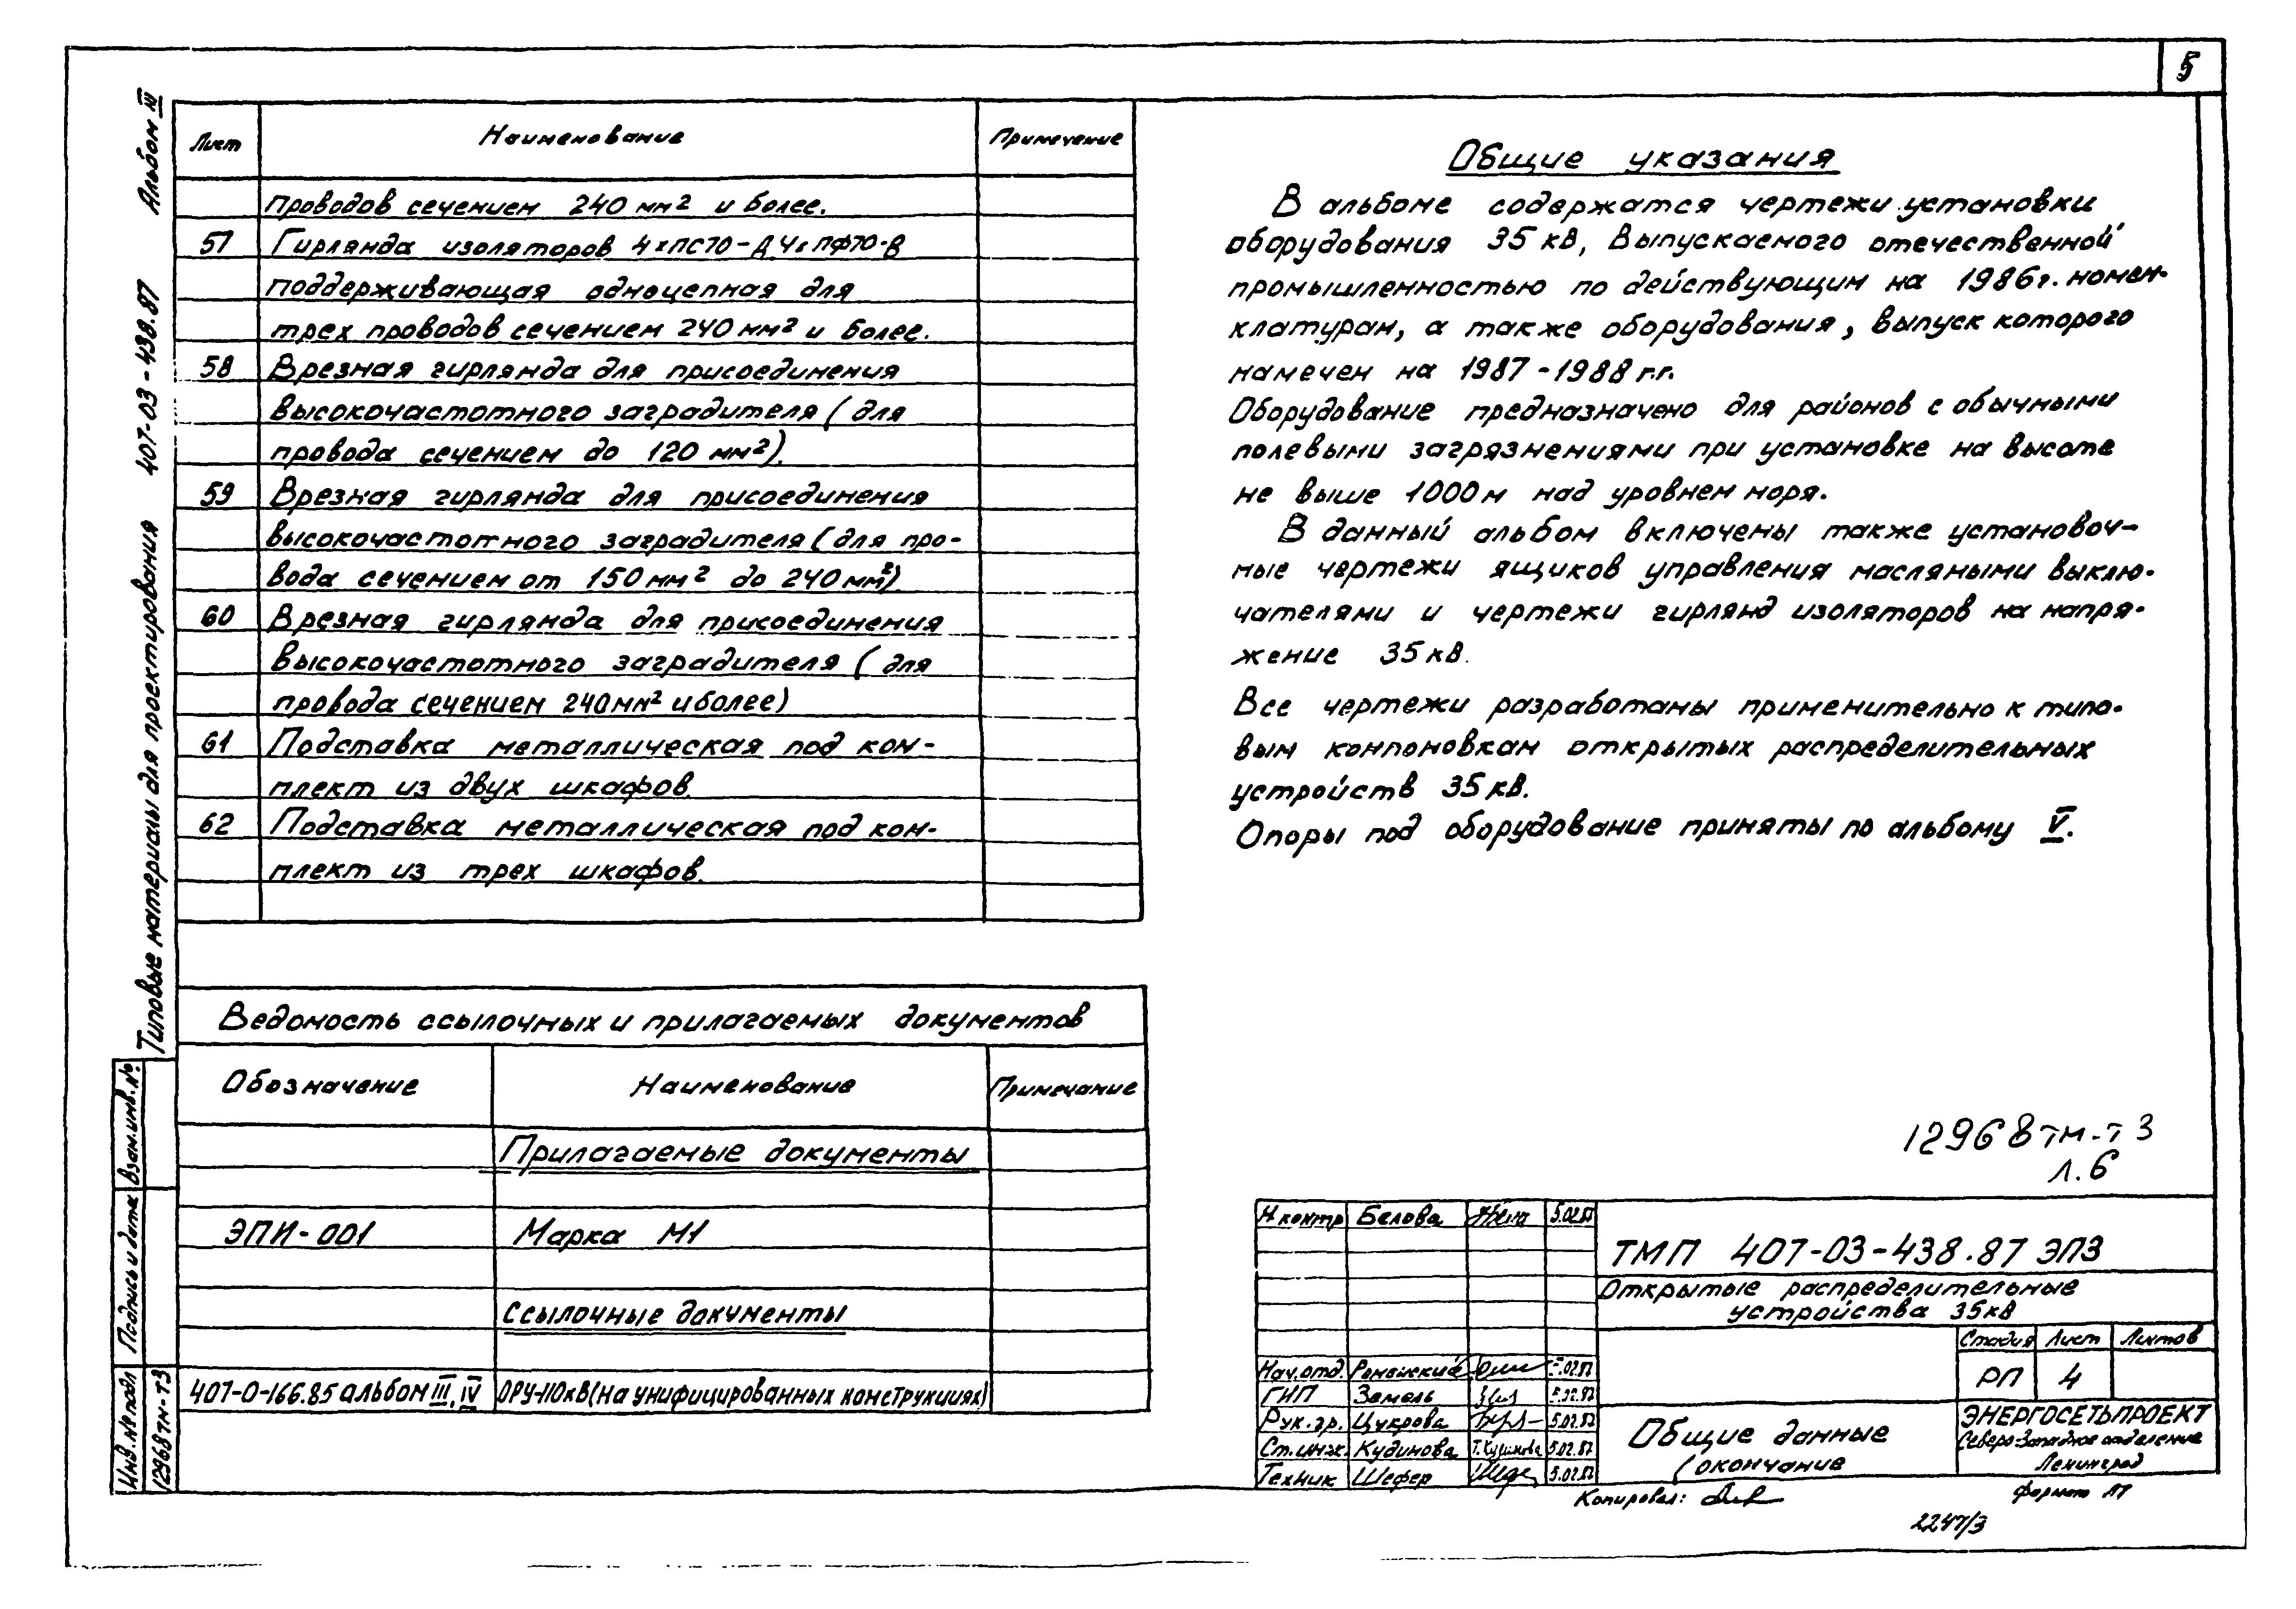 5
Типовые материалы для проектирования 407-03-438.87 Альбом III
Лист Наименование Примечание
проводов сечением 240 мм² и более.
57 Гирлянда изоляторов 4хПС70-Д, 4хПФ70-В
поддерживающая одноцепная для
трех проводов сечением 240 мм² и более.
58 Врезная гирлянда для присоединения
высокочастотного заградителя (для
провода сечением до 120 мм²).
59 Врезная гирлянда для присоединения
высокочастотного заградителя (для про-
вода сечением от 150 мм² до 240 мм²).
60 Врезная гирлянда для присоединения
высокочастотного заградителя (для
провода сечением 240 мм² и более)
61 Подставка металлическая под ком-
плект из двух шкафов.
62 Подставка металлическая под ком-
плект из трех шкафов.
Ведомость ссылочных и прилагаемых документов
Обозначение Наименование Примечание
Прилагаемые документы
ЭПИ-001 Марка М1
Ссылочные документы
407-0-166.85 альбом III, IV ОРУ-110кВ (на унифицированных конструкциях)
Общие указания
В альбоме содержатся чертежи установки
оборудования 35 кВ, выпускаемого отечественной
промышленностью по действующим на 1986г. номен-
клатурам, а также оборудования, выпуск которого
намечен на 1987-1988 г.г.
Оборудование предназначено для районов с обычными
полевыми загрязнениями при установке на высоте
не выше 1000м над уровнем моря.
В данный альбом включены также установоч-
ные чертежи ящиков управления масляными выклю-
чателями и чертежи гирлянд изоляторов на напря-
жение 35 кВ.
Все чертежи разработаны применительно к типо-
вым компоновкам открытых распределительных
устройств 35 кВ.
Опоры под оборудование приняты по альбому V.
12968тм-т3
л.6
Н.контр Белова 5.02.87
ТМП 407-03-438.87 ЭП3
Открытые распределительные
устройства 35кВ
Стадия Лист Листов
РП 4
Нач.отд. Роменский 5.02.87
ГИП Земель 5.02.87
Рук.гр. Цукрова 5.02.87
Ст.инж. Кудинова Т.Кудинова 5.02.87
Техник Шефер 5.02.87
Общие данные
(окончание
ЭНЕРГОСЕТЬПРОЕКТ
Северо-Западное отделение
Ленинград
Копировал:
Формат
2247/3
Взам.инв.№
Подпись и дата
Инв.№подл 12968тм-т3